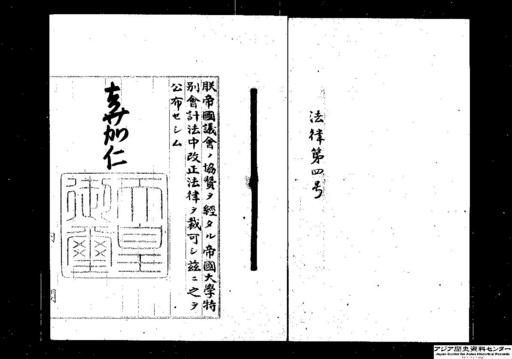 法律第四号
朕帝國議會ノ協賛ヲ經タル帝國大學特
別會計法中改正法律ヲ裁可シ茲ニ之ヲ
公布セシム
嘉仁
天皇
御璽
アジア歴史資料センター
Japan Center for Asian Historical Records